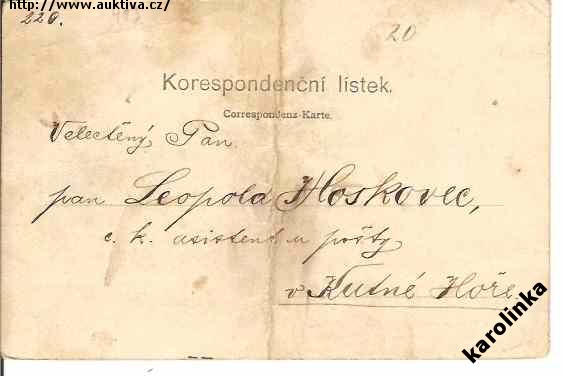 http://www.auktiva.cz/
226.
20
Korespondenční lístek.
Correspondenz-Karte.
Velectěný Pan
pan Leopold Hoskovec,
c. k. asistent u pošty
v Kutné Hoře
karolinka